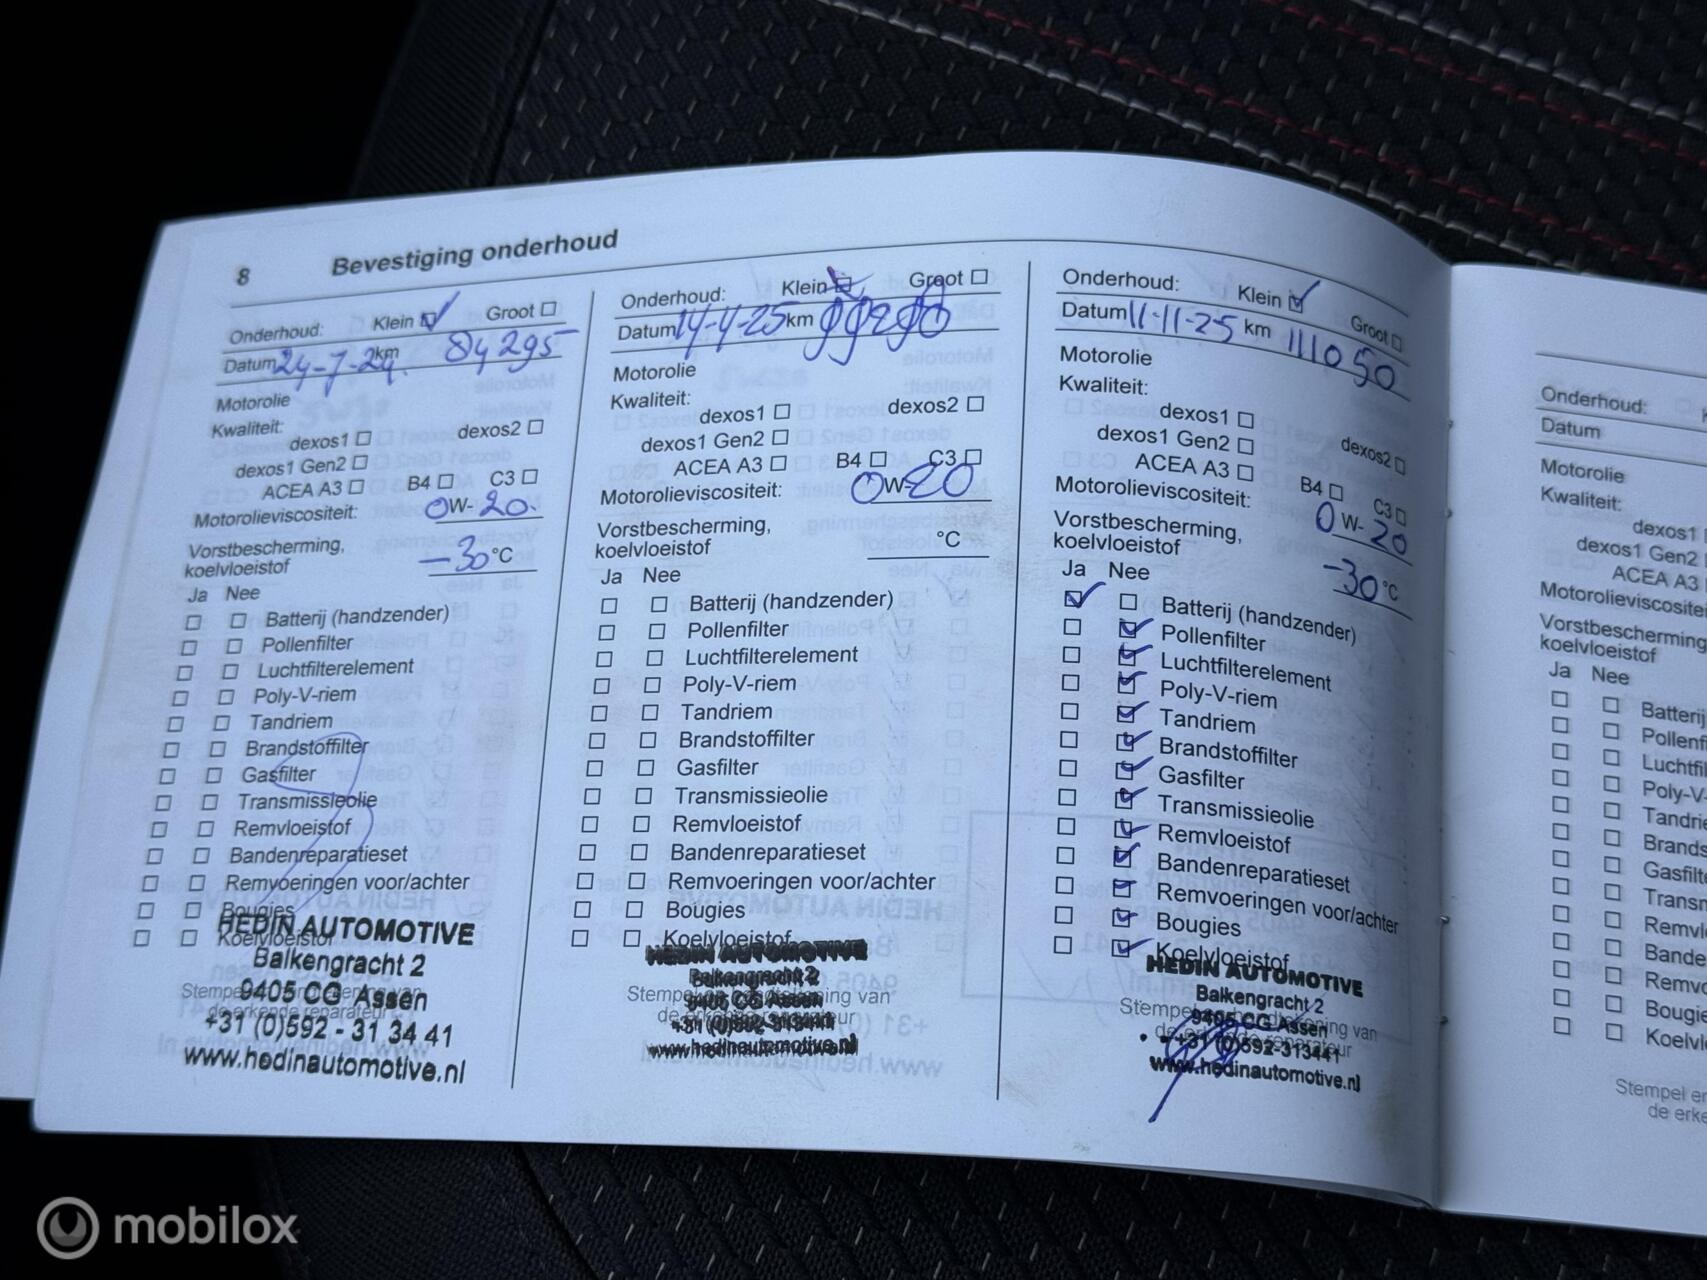 8 Bevestiging onderhoud
Onderhoud: Klein Groot
Datum 24-7-24 km 84295
Motorolie
Kwaliteit:
dexos1 dexos2
dexos1 Gen2
ACEA A3 B4 C3
Motorolieviscositeit: 0W-20
Vorstbescherming,
koelvloeistof -30 °C
Ja Nee
Batterij (handzender)
Pollenfilter
Luchtfilterelement
Poly-V-riem
Tandriem
Brandstoffilter
Gasfilter
Transmissieolie
Remvloeistof
Bandenreparatieset
Remvoeringen voor/achter
Bougies
Koelvloeistof
HEDIN AUTOMOTIVE
Balkengracht 2
9405 CG Assen
+31 (0)592 - 31 34 41
www.hedinautomotive.nl
Onderhoud: Klein Groot
Datum 14-4-25 km
Motorolie
Kwaliteit:
dexos1 dexos2
dexos1 Gen2
ACEA A3 B4 C3
Motorolieviscositeit: 0W-20
Vorstbescherming,
koelvloeistof °C
Ja Nee
Batterij (handzender)
Pollenfilter
Luchtfilterelement
Poly-V-riem
Tandriem
Brandstoffilter
Gasfilter
Transmissieolie
Remvloeistof
Bandenreparatieset
Remvoeringen voor/achter
Bougies
Koelvloeistof
HEDIN AUTOMOTIVE
Balkengracht 2
9405 CG Assen
Stempel en handtekening van
de erkende reparateur
+31 (0)592-313441
www.hedinautomotive.nl
Onderhoud: Klein Groot
Datum 11-11-25 km 111050
Motorolie
Kwaliteit:
dexos1 dexos2
dexos1 Gen2
ACEA A3 B4 C3
Motorolieviscositeit: 0W-20
Vorstbescherming,
koelvloeistof -30 °C
Ja Nee
Batterij (handzender)
Pollenfilter
Luchtfilterelement
Poly-V-riem
Tandriem
Brandstoffilter
Gasfilter
Transmissieolie
Remvloeistof
Bandenreparatieset
Remvoeringen voor/achter
Bougies
Koelvloeistof
HEDIN AUTOMOTIVE
Balkengracht 2
9405 CG Assen
Stempel en handtekening van
de erkende reparateur
+31 (0)592-313441
www.hedinautomotive.nl
Onderhoud:
Datum
Motorolie
Kwaliteit:
dexos1
dexos1 Gen2
ACEA A3
Motorolieviscositei
Vorstbescherming
koelvloeistof
Ja Nee
Batterij
Pollenfi
Luchtfil
Poly-V-
Tandrie
Brands
Gasfilte
Transn
Remvl
Bande
Remvo
Bougie
Koelvl
Stempel er
de erke
mobilox